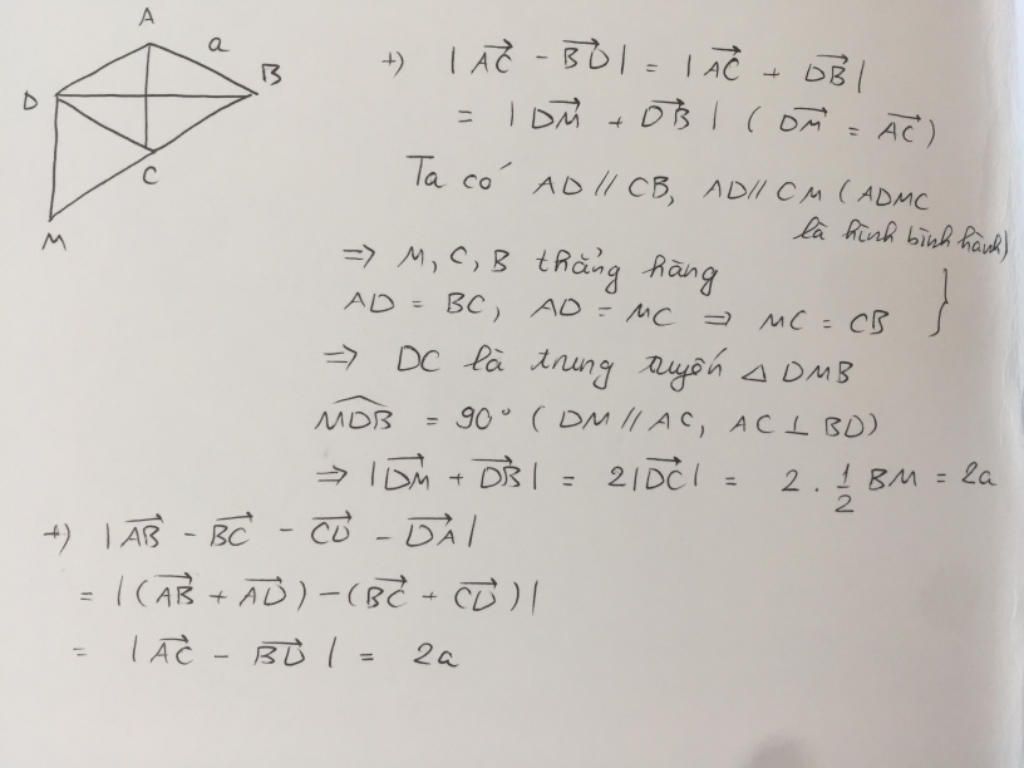 A
a
B
D
C
M
+) |AC⃗ - BD⃗| = |AC⃗ + DB⃗|
= |DM⃗ + DB⃗| (DM⃗ = AC⃗)
Ta có AD // CB, AD // CM (ADMC
là hình bình hành)
=> M, C, B thẳng hàng
AD = BC, AD = MC => MC = CB }
=> DC là trung tuyến △ DMB
M͡DB = 90° (DM // AC, AC ⊥ BD)
=> |DM⃗ + DB⃗| = 2|DC⃗| = 2 . 1/2 BM = 2a
+) |AB⃗ - BC⃗ - CD⃗ - DA⃗|
= |(AB⃗ + AD⃗) - (BC⃗ + CD⃗)|
= |AC⃗ - BD⃗| = 2a